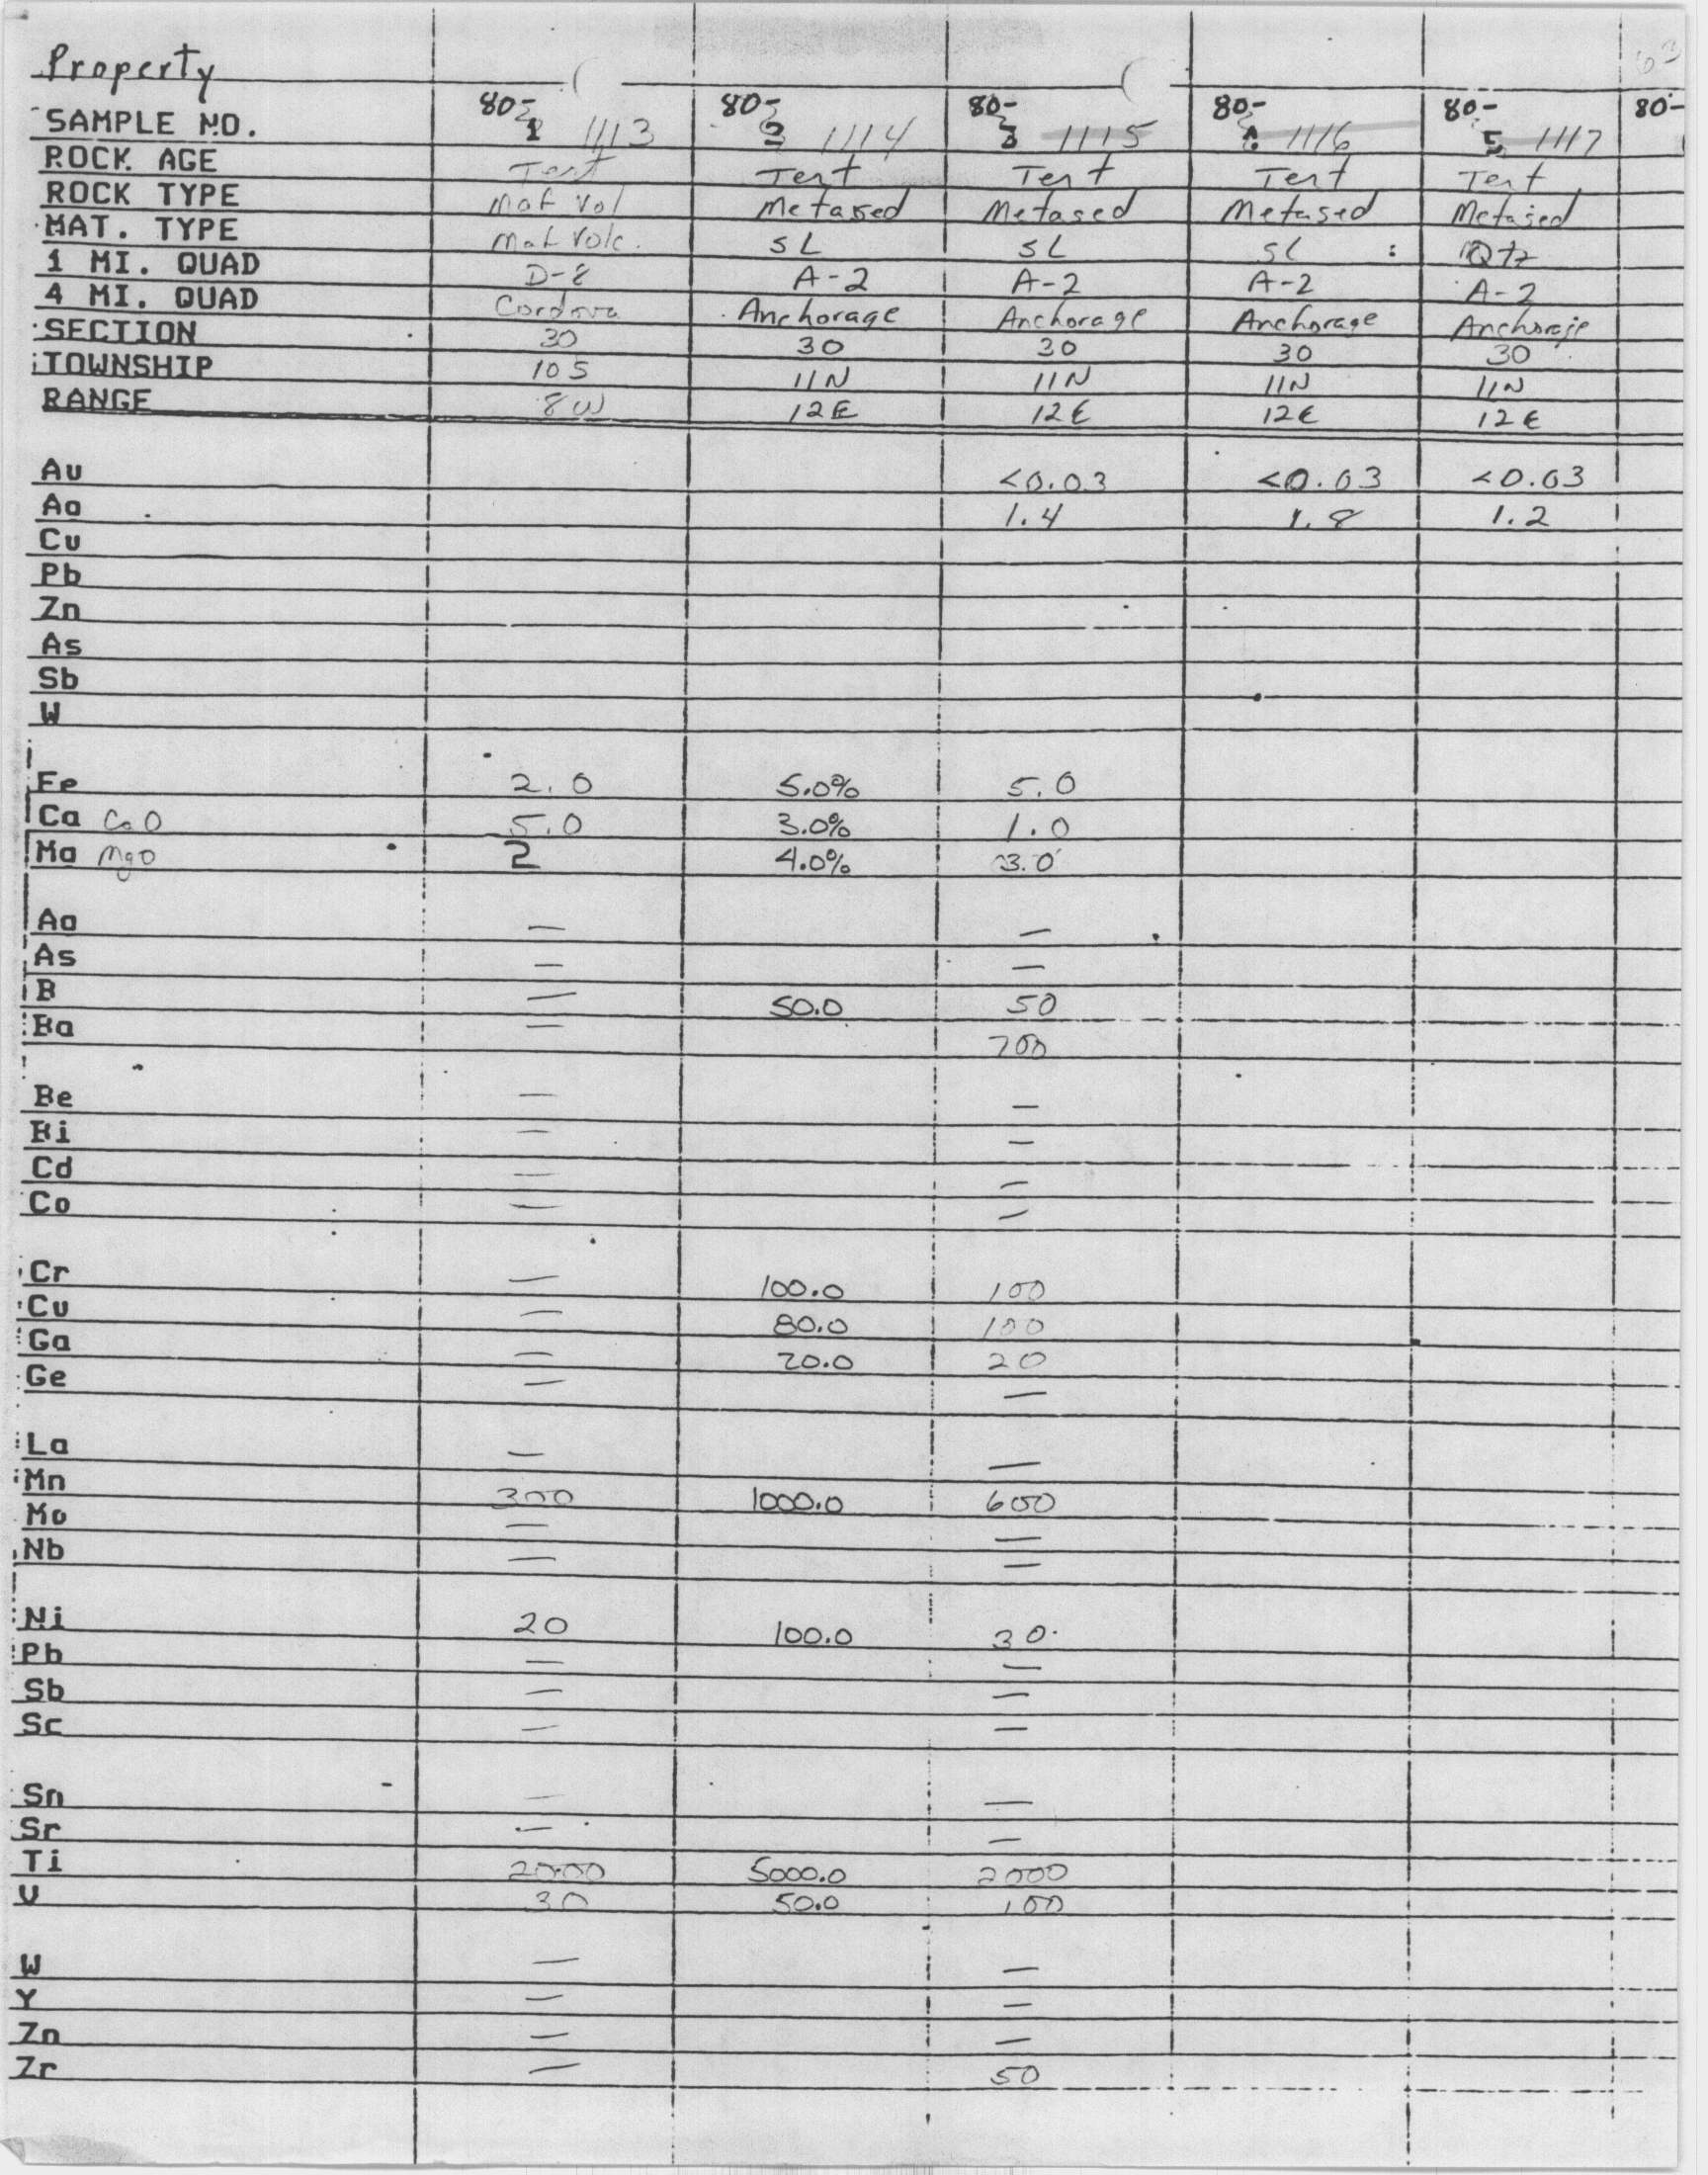 Property
80- 80- 80- 80- 80- 80-
SAMPLE NO. 1 1113 2 1114 3 1115 1116 5 1117
ROCK AGE Tert Tert Tert Tert Tert
ROCK TYPE Met Vol Metased Metased Metased Metased
MAT. TYPE Met Volc. SL SL SL Qtz
1 MI. QUAD D-8 A-2 A-2 A-2 A-2
4 MI. QUAD Cordova Anchorage Anchorage Anchorage Anchorage
SECTION 30 30 30 30 30
TOWNSHIP 10S 11N 11N 11N 11N
RANGE 8W 12E 12E 12E 12E
Au <0.03 <0.03 <0.03
Ag 1.4 1.8 1.2
Cu
Pb
Zn
As
Sb
W
Fe 2.0 5.0% 5.0
Ca CaO 5.0 3.0% 1.0
Mg MgO 2 4.0% 3.0
Ag — —
As — —
B — 50.0 50
Ba — 700
Be — —
Bi — —
Cd — —
Co — —
Cr — 100.0 100
Cu — 80.0 100
Ga — 20.0 20
Ge — —
La — —
Mn 300 1000.0 600
Mo — —
Nb — —
Ni 20 100.0 30
Pb — —
Sb — —
Sc — —
Sn — —
Sr — —
Ti 2000 5000.0 2000
V 30 50.0 100
W — —
Y — —
Zn — —
Zr — 50